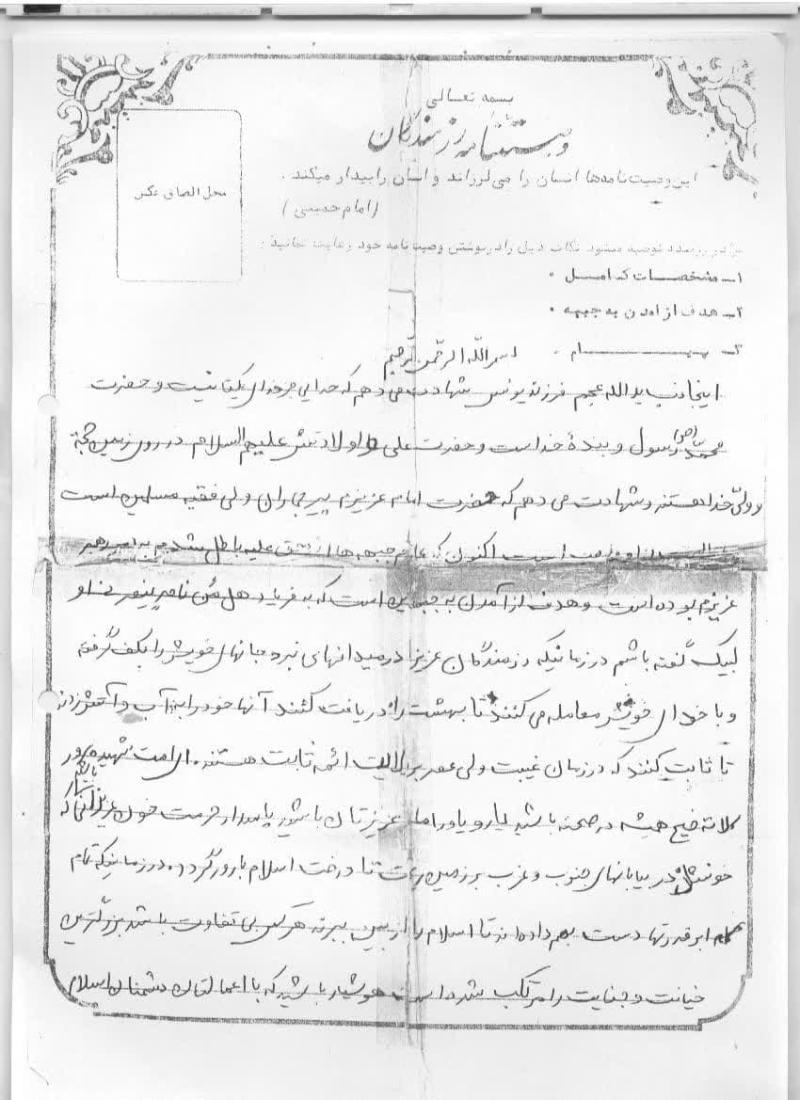 بسمه تعالی
وصیتنامه رزمندگان
این وصیت‌نامه‌ها انسان را می‌لرزاند و انسان را بیدار میکند .
(امام خمینی)
محل الصاق عکس
توصیه میشود نکات ذیل را در نوشتن وصیت نامه خود رعایت نمائید :
۱ــ مشخصات کامل .
۲ــ هدف از آمدن به جبهه .
۳ــ پیــــــــــام .
بسم الله الرحمن الرحیم
اینجانب یدالله عجم فرزند یونس شهادت می دهم که خدایی جز خدای یکتا نیست و حضرت
محمد (ص) رسول و بندهٔ خداست و حضرت علی و اولادش علیهم السلام در روی زمین حجة
و ولیّ خدا هستند و شهادت می دهم که حضرت امام عزیزم پیر جماران ولی فقیه مسلمین است
است اکنون که عازم جبهه ها حق علیه باطل شدم به رهبر
عزیزم بوده است و هدف از آمدن به جبهه این است که به فریاد هل من ناصر ینصرنی او
لبیک گفته باشم در زمانیکه رزمندگان عزیز در میدانهای نبرد جانهای خویش را بکف گرفته
و با خدای خویش معامله می کنند تا بهشت را دریافت کنند آنها خود را به آب و آتش زدند
تا ثابت کنند که در زمان غیبت ولی عصر بر ولایت ائمه ثابت هستند. ای امت شهید پرور
همیشه در صحنه باشید یار و یاور امام عزیزتان باشید پاسدار حرمت خون عزیزانی که
خونشان در بیابانهای جنوب و غرب بر زمین ریخت تا درخت اسلام بارور گردد. در زمانیکه تمام
ابرقدرتها دست بهم داده اند تا اسلام را از بین ببرند هر کس بی تفاوت باشد بزرگترین
خیانت و جنایت را مرتکب شده است هوشیار باشید که با اعمالتان دشمنان اسلام